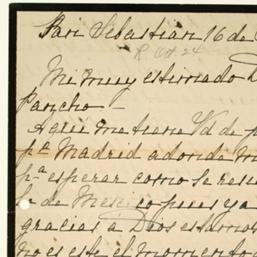 San Sebastian 16 de
R Oct 24
Mi muy estimado D
Pancho—
Aquí me tiene Vd de p
pª Madrid adonde m
pª esperar como se resu
lo de Mexico pues ya
gracias a Dios estamos
no es este el momento